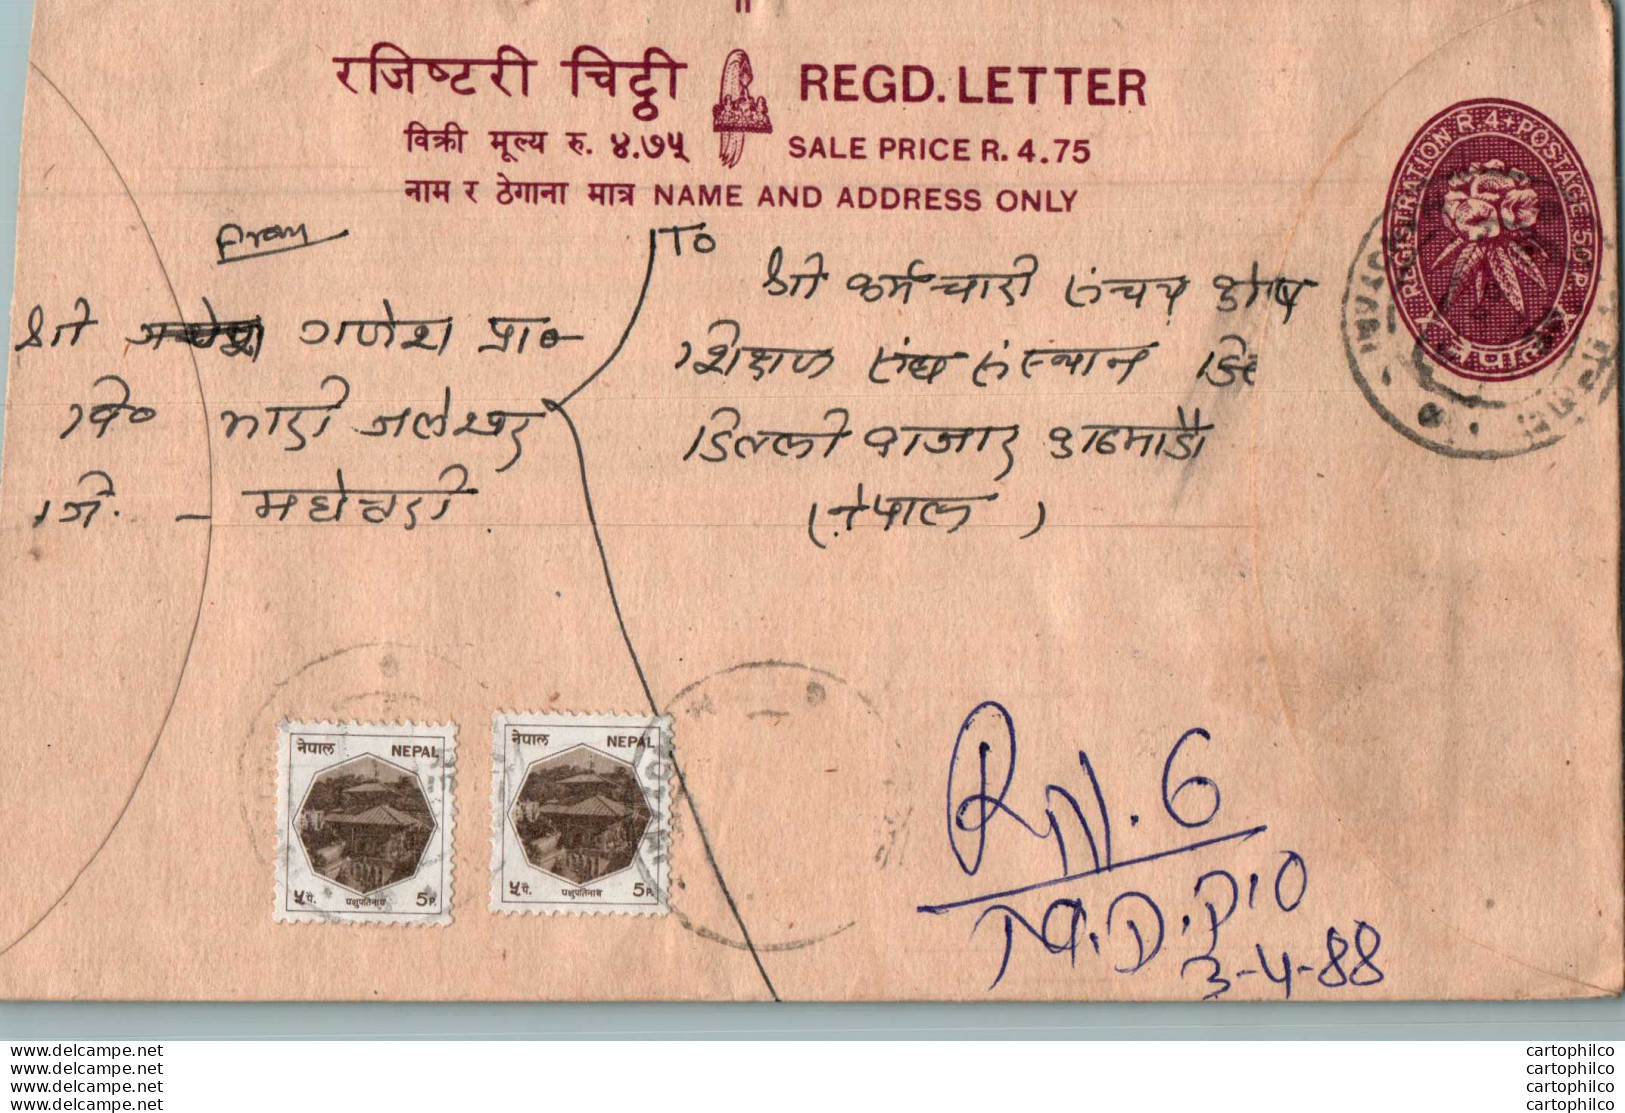 रजिष्टरी चिट्ठी REGD. LETTER
विक्री मूल्य रु. ४.७५ SALE PRICE R. 4.75
नाम र ठेगाना मात्र NAME AND ADDRESS ONLY
REGISTRATION R. 4+POSTAGE 50 P.
नेपाल
From
श्री गणेश प्रा०
वि० भाडी जलेश्वर
जि. -
To
श्री कर्मचारी संचय कोष
शिक्षण संघ संस्थान डि
डिल्ली बाजार काठमाडौ
(नेपाल)
नेपाल NEPAL
५ पै. पशुपतिनाथ 5 P.
नेपाल NEPAL
५ पै. पशुपतिनाथ 5 P.
6
3-4-88
www.delcampe.net cartophilco
www.delcampe.net cartophilco
www.delcampe.net cartophilco
www.delcampe.net cartophilco